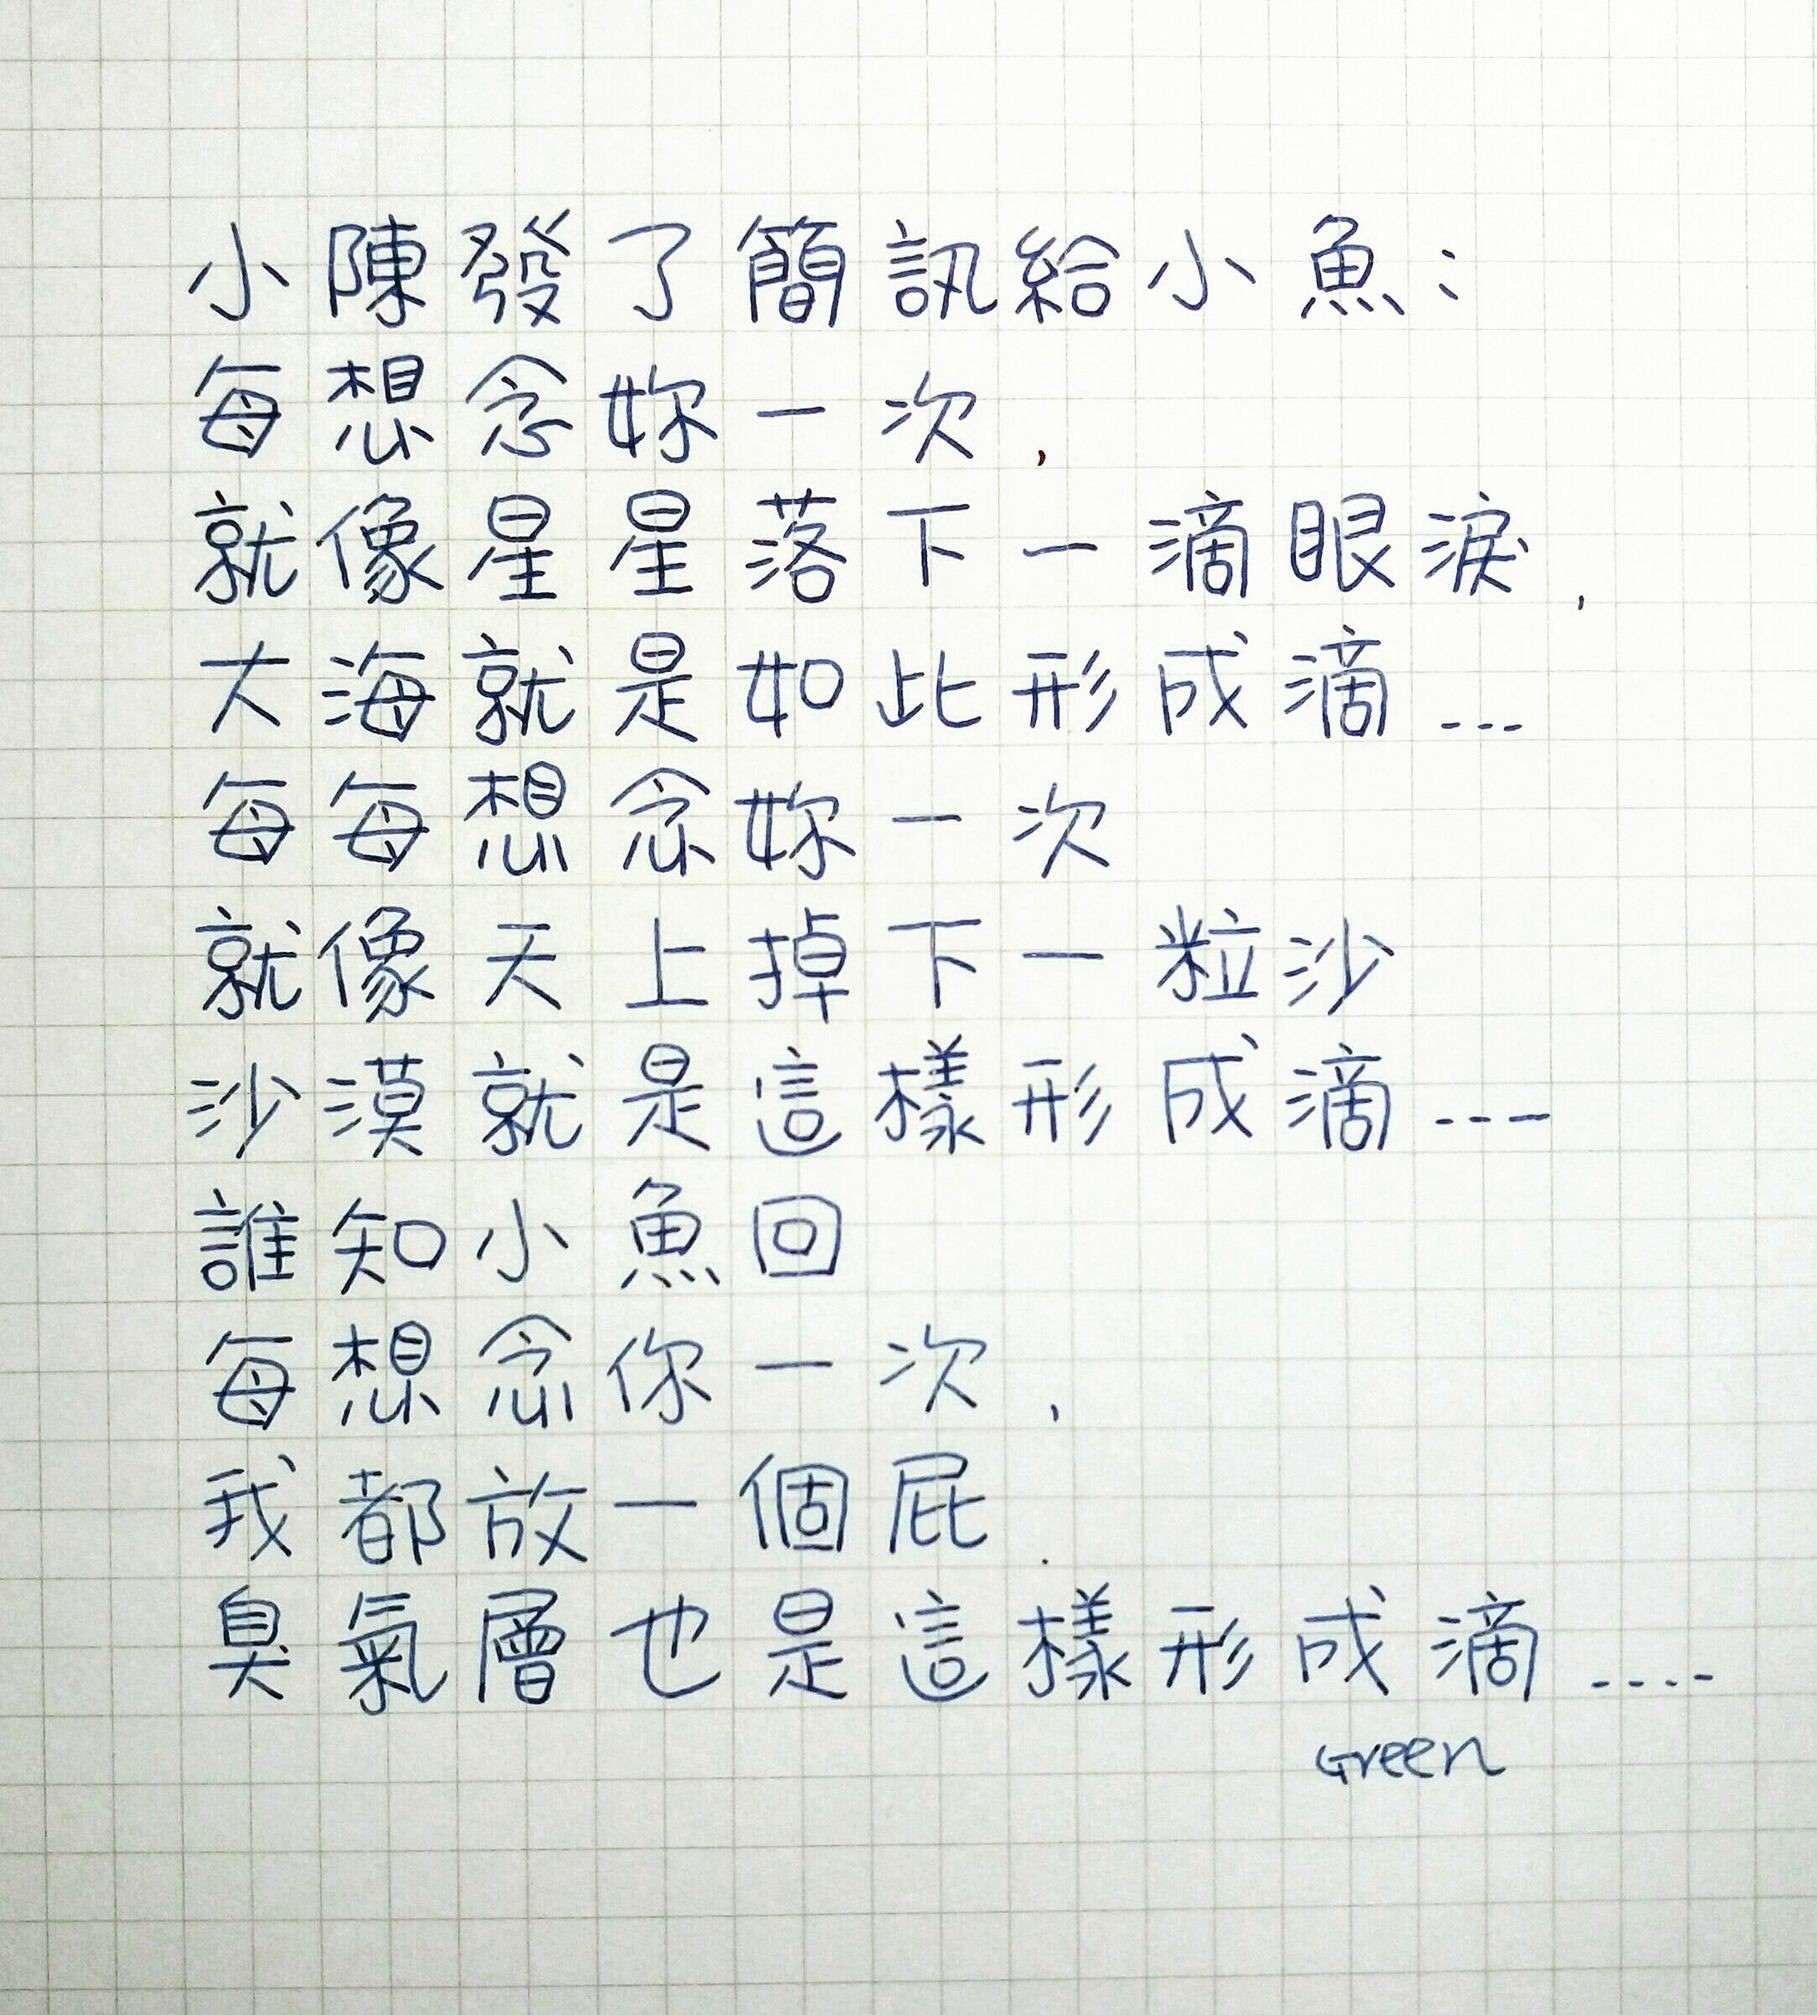 小陳發了簡訊給小魚：
每想念妳一次,
就像星星落下一滴眼淚,
大海就是如此形成滴...
每每想念妳一次
就像天上掉下一粒沙
沙漠就是這樣形成滴---
誰知小魚回
每想念你一次,
我都放一個屁.
臭氣層也是這樣形成滴....
Green